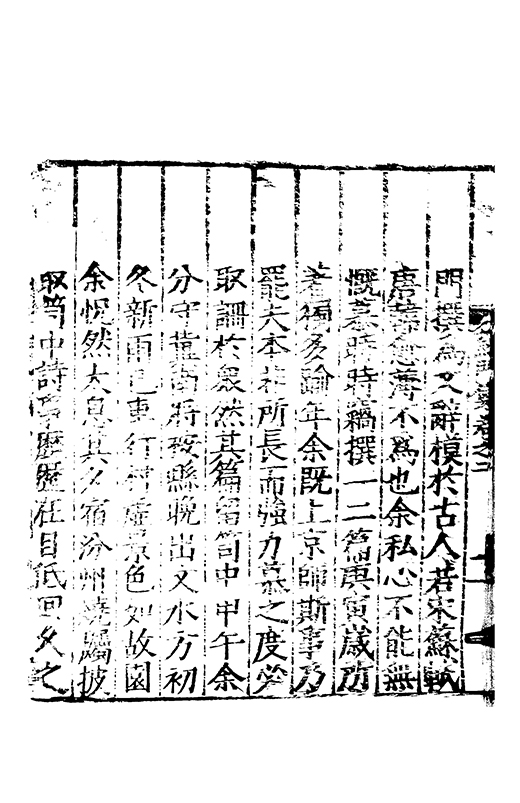 門撰爲文辭模於古人若宋蘇軾
唐蕭愈薄不爲也余私心不能無
慨慕時時竊撰一二篇庚寅歲所
著獨多踰年余既上京師斯事乃
罷夫本非所長而強力慕之度必
取譏於衆然其篇留笥中甲午余
分守冀南將按縣晚出文水方初
冬新雨已車行村虛景色如故園
余怳然大息其夕宿汾州燒燭披
取笥中詩事歷歷在目低回久之